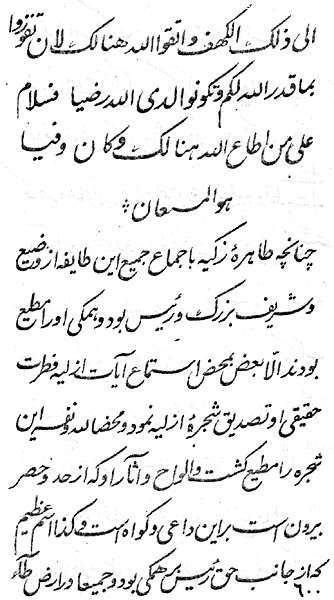 الی ذلک الکهف واتقوا الله هنالک لان تفوزوا
بما قدر الله لکم و تکونوا لدی الله رضیا فسلام
علی من اطاع الله هنالک و کان وفیا
هو المستعان
چنانچه طاهرهٔ زکیه باجماع جمیع این طایفه از وضیع
و شریف بزرگ و رئیس بود و همکی او را مطیع
بودند الّا بعض بمحض استماع آیات ازلیه فطرت
حقیقی او تصدیق شجرهٔ ازلیه نمود و محضا لله و نفسه این
شجره را مطیع کشت و الواح و آثار او که از حد و حصر
بیرون است بر این داعی و کواه است و کذا اسم عظیم
که از جانب حق رئیس بر همکی بود و جمیعا در ارض طآء
۶۰۰